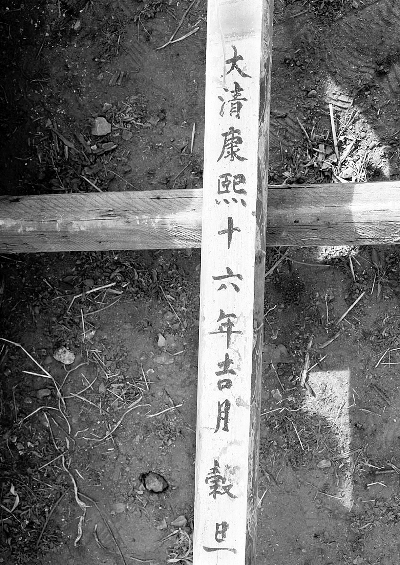 大清康熙十六年吉月穀旦